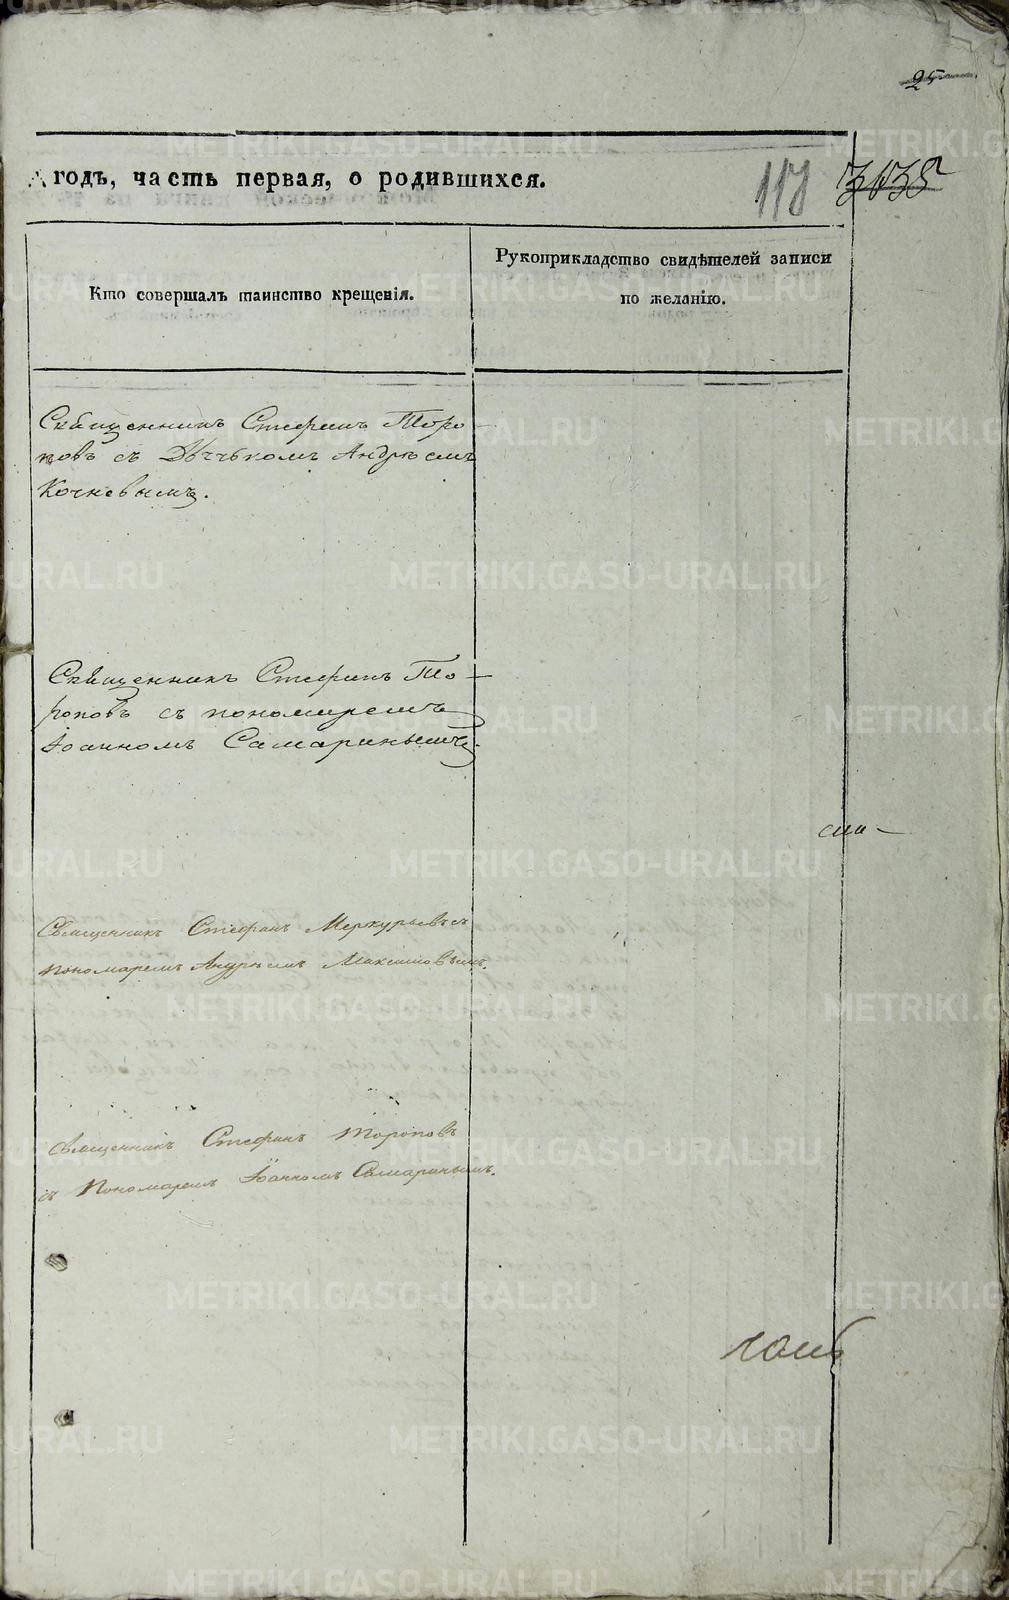 25
годъ, часть первая, о родившихся.
118
Кто совершалъ таинство крещенія.
Рукоприкладство свидѣтелей записи
по желанію.
Священникъ Стефанъ Торо
повъ съ Дьячькомъ Андреемъ
Кочневымъ.
Священникъ Стефанъ То-
роповъ съ пономаремъ
Іоанномъ Самаринымъ.
Священникъ Стефанъ Меркурьевъ съ
пономаремъ Андреемъ Максимовымъ.
Священникъ Стефанъ Тороповъ
съ Пономаремъ Іоанномъ Самаринымъ.
METRIKI.GASO-URAL.RU